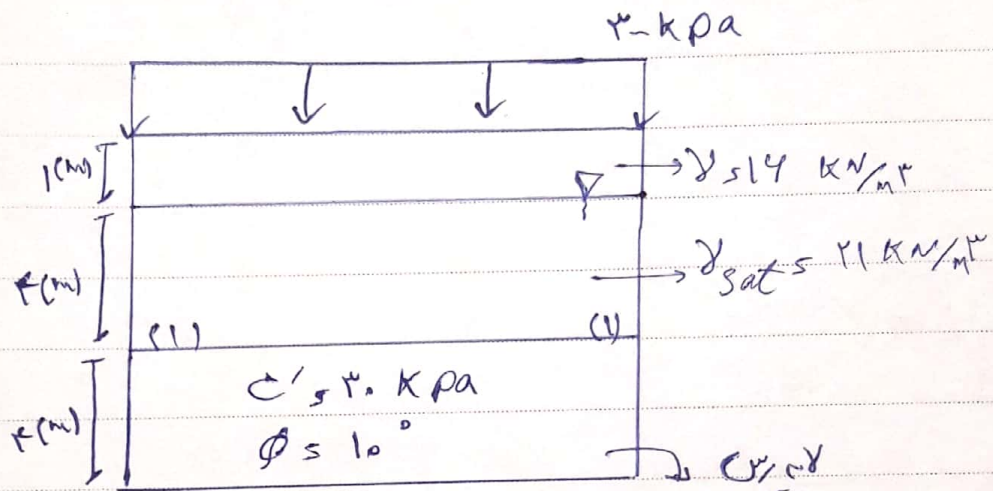 ۳۰ kpa
۱(m)
γ = ۱۶ KN/m۳
۴(m)
γsat = ۲۱ KN/m۳
(۱) (۱)
۴(m)
C' = ۳۰ Kpa
φ = ۱۰°